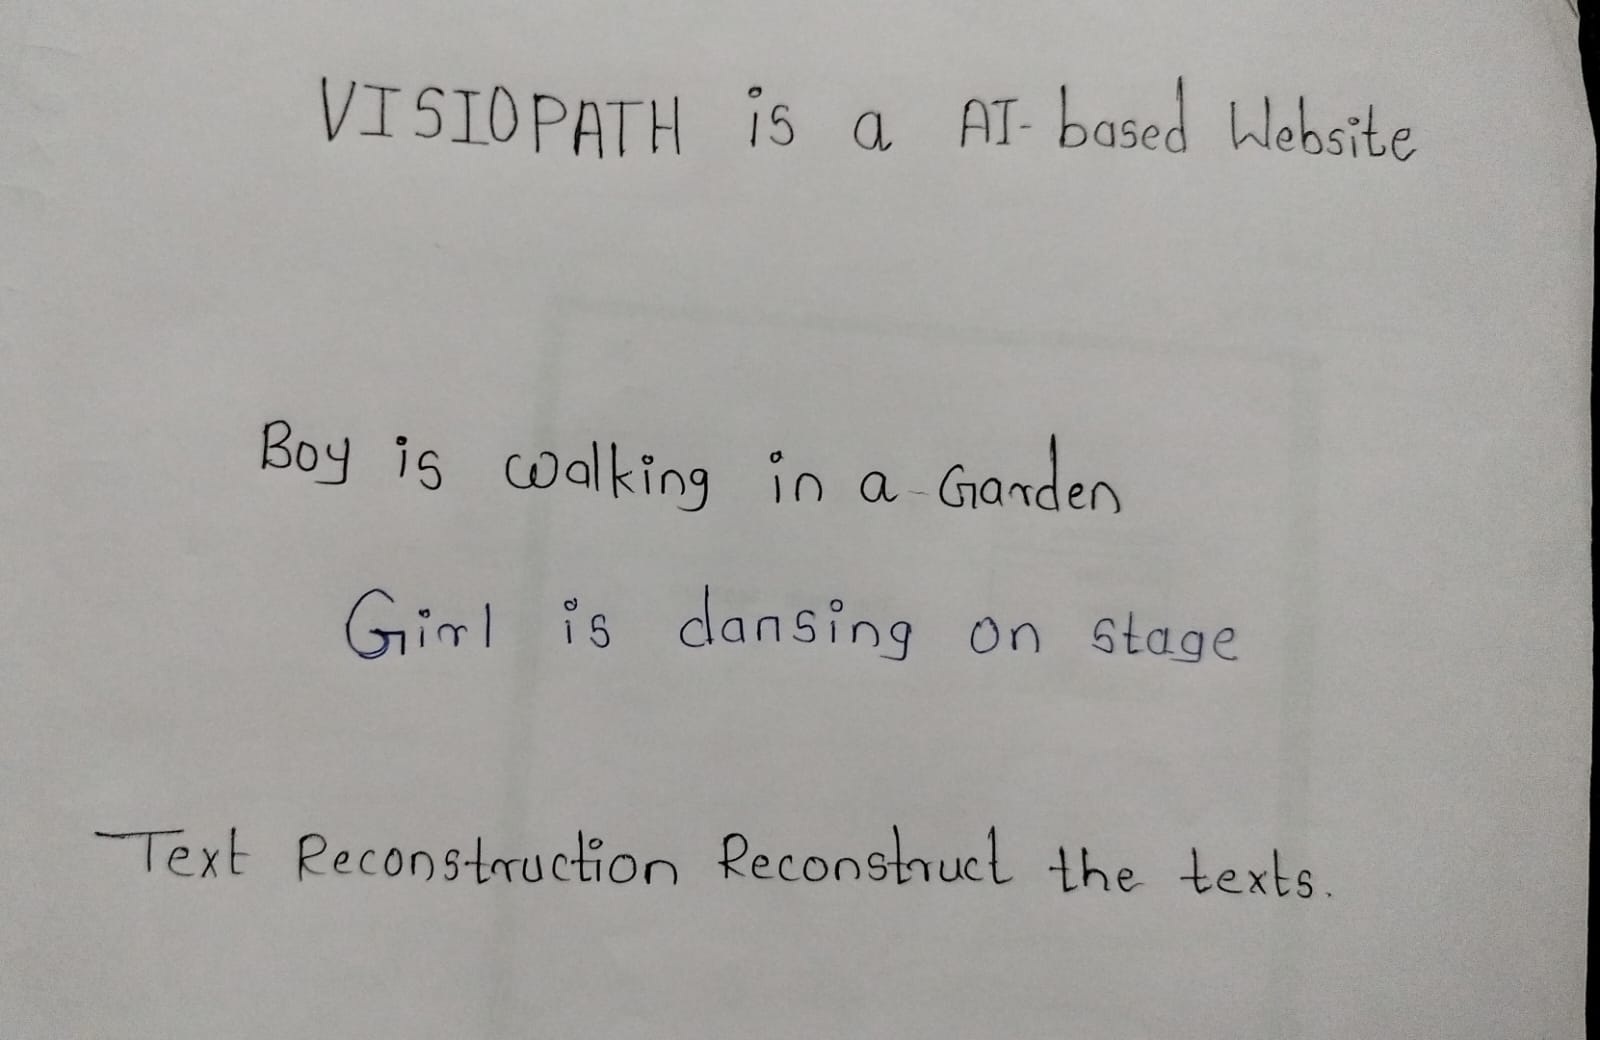 VISIOPATH is a AI-based Website
Boy is walking in a Garden
Girl is dansing on stage
Text Reconstruction Reconstruct the texts.